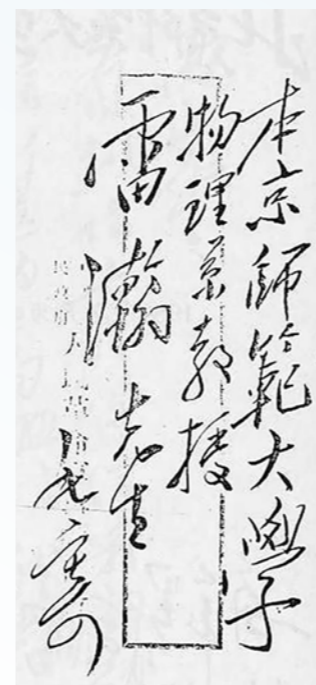 本京師範大學
物理系教授
雷瀚先生
毛寄